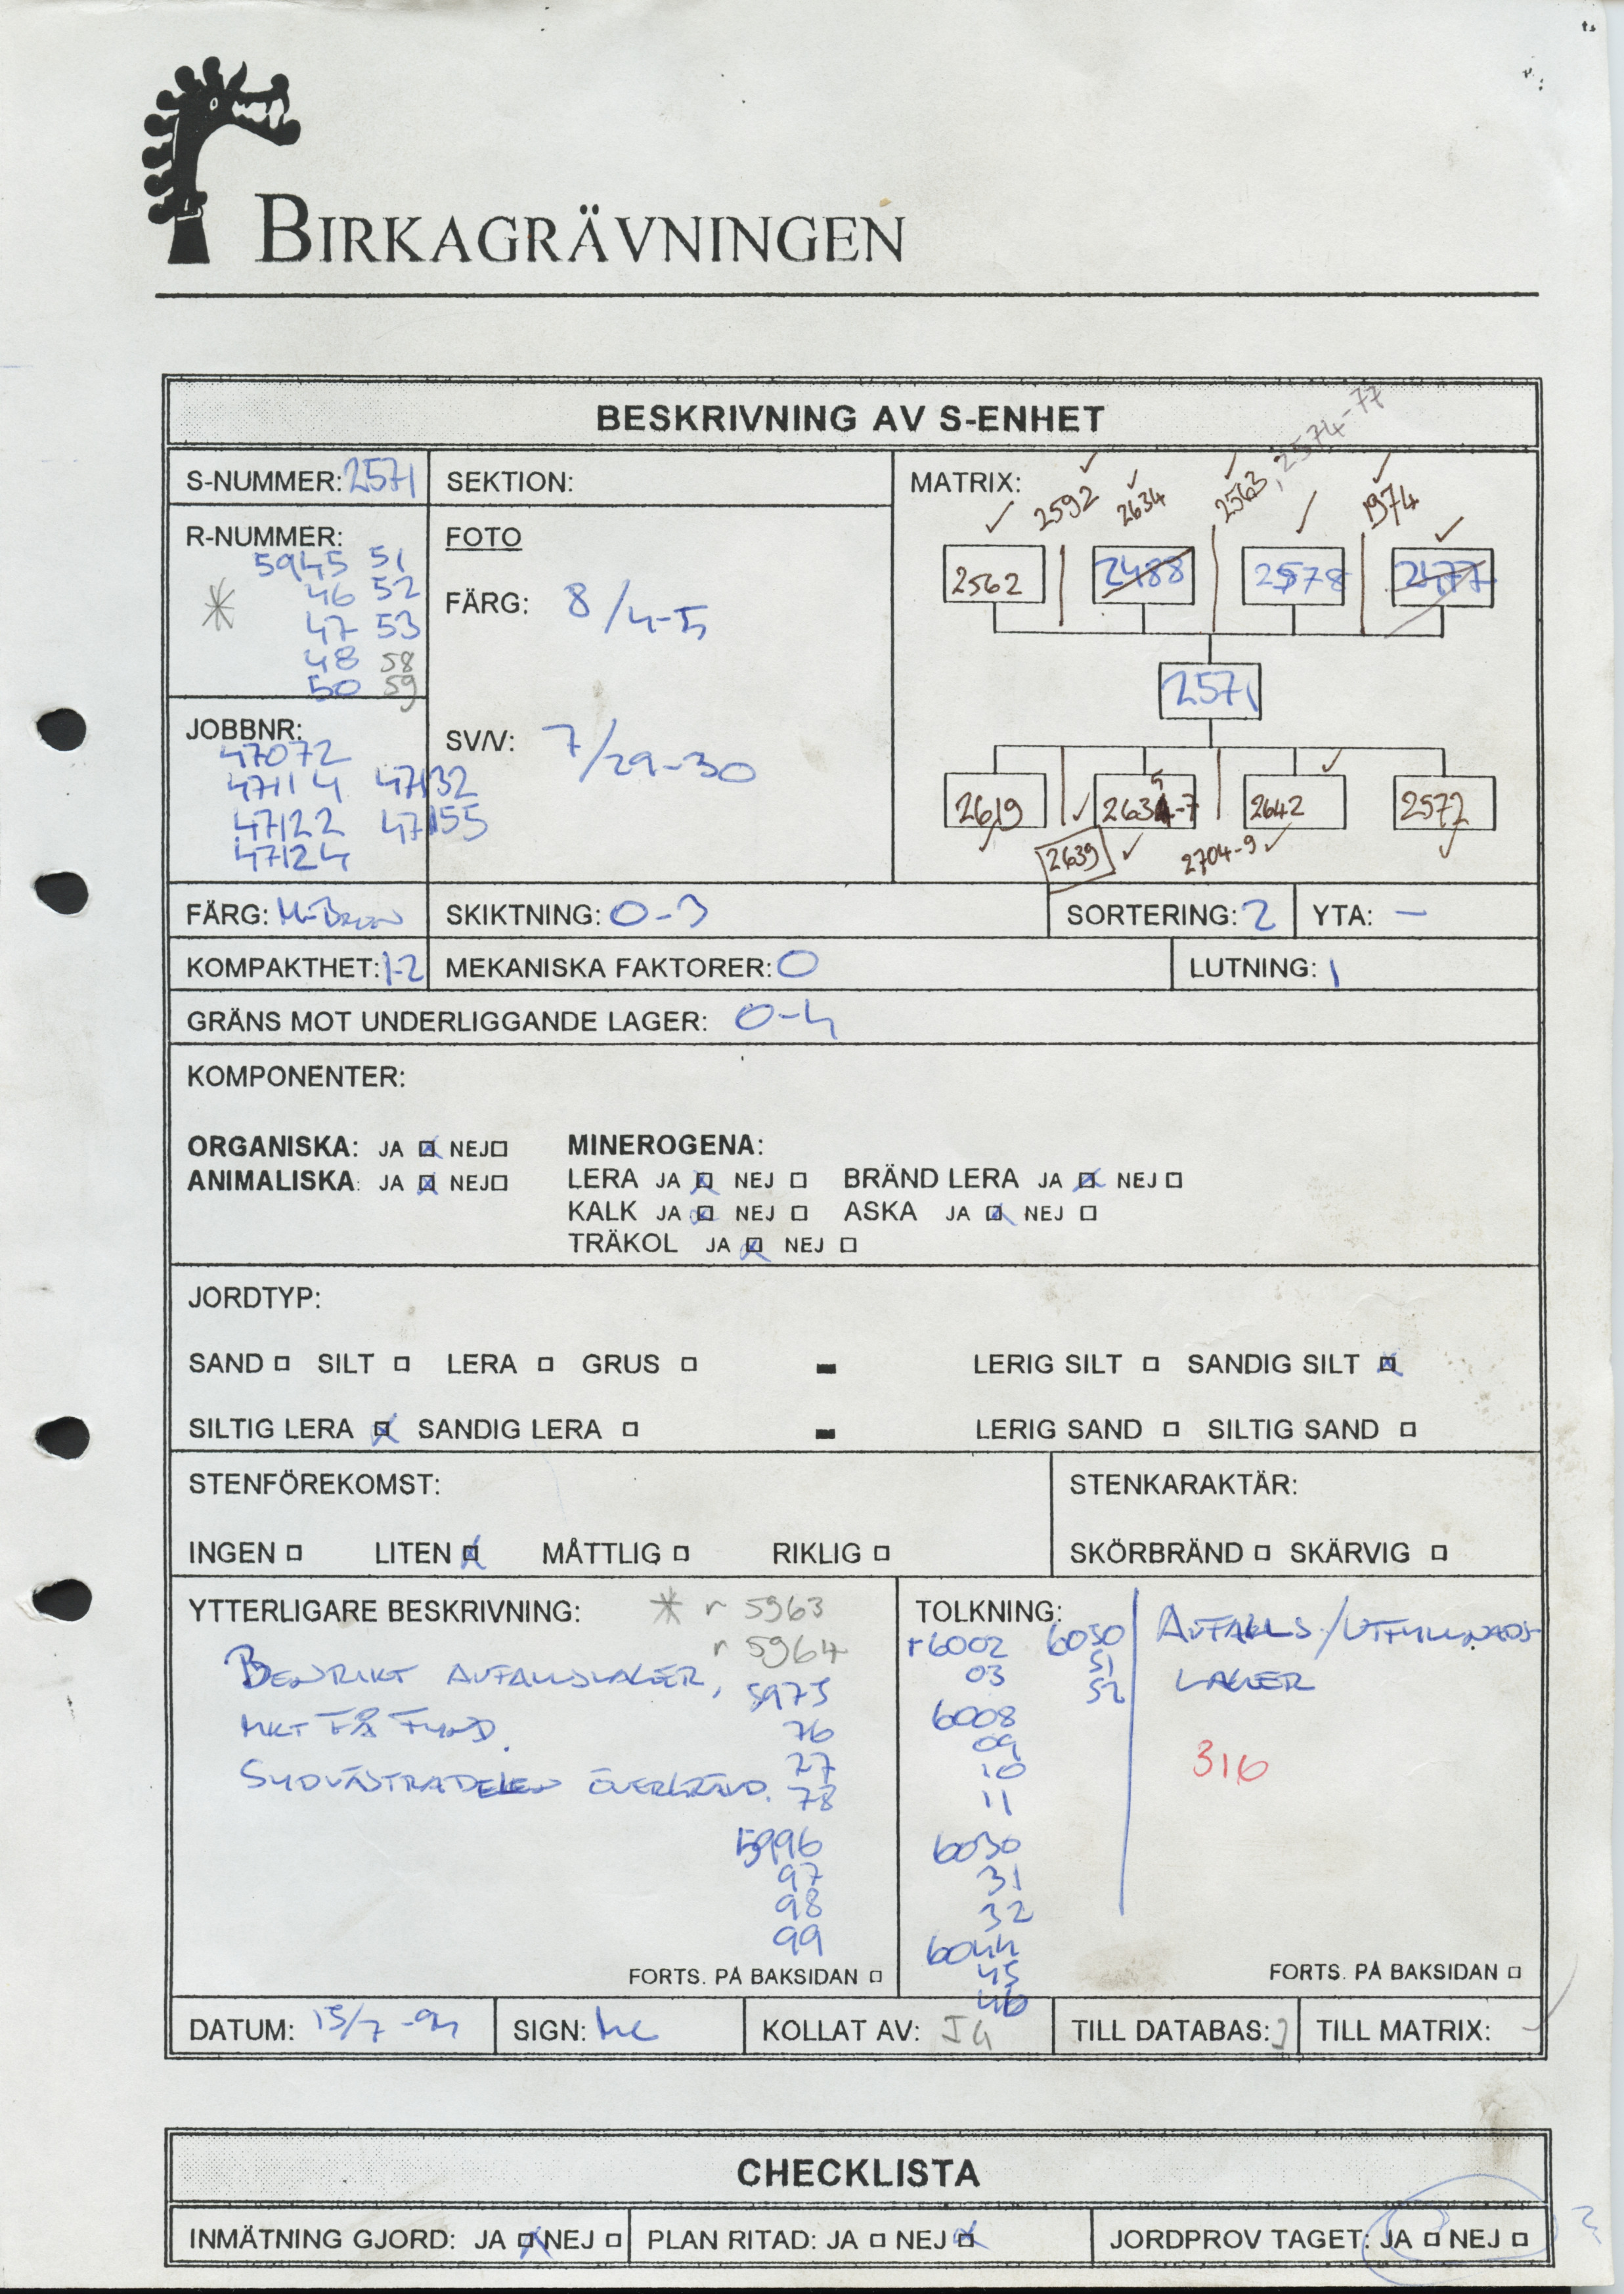 BIRKAGRÄVNINGEN
BESKRIVNING AV S-ENHET
S-NUMMER: 2571
SEKTION:
MATRIX:
2592 2634 2563, 2574-77 1974
2562 2488 2578 2477
2571
2619 2635-7 2642 2572
2639 2704-9
R-NUMMER:
5945 51
* 46 52
47 53
48 58
50 59
FOTO
FÄRG: 8/4-5
SV/V: 7/29-30
JOBBNR:
47072
47114 47132
47122 47155
47124
FÄRG: M-Brun SKIKTNING: 0-3 SORTERING: 2 YTA: –
KOMPAKTHET: 1-2 MEKANISKA FAKTORER: 0 LUTNING: 1
GRÄNS MOT UNDERLIGGANDE LAGER: 0-4
KOMPONENTER:
ORGANISKA: JA NEJ MINEROGENA:
ANIMALISKA: JA NEJ LERA JA NEJ BRÄND LERA JA NEJ
KALK JA NEJ ASKA JA NEJ
TRÄKOL JA NEJ
JORDTYP:
SAND SILT LERA GRUS - LERIG SILT SANDIG SILT
SILTIG LERA SANDIG LERA - LERIG SAND SILTIG SAND
STENFÖREKOMST: STENKARAKTÄR:
INGEN LITEN MÅTTLIG RIKLIG SKÖRBRÄND SKÄRVIG
YTTERLIGARE BESKRIVNING: * r 5963
r 5964
BENRIKT AVFALLSLAGER, 5975
MKT FÅ FYND. 76
77
SYDVÄSTRA DELEN ÖVERGRÄVD. 78
5996
97
98
99
FORTS. PÅ BAKSIDAN
TOLKNING:
r6002 6050
03 51
52
6008
09
10
11
6030
31
32
6044
45
46
AVFALLS/UTFYLLNADS-
LAGER
316
FORTS. PÅ BAKSIDAN
DATUM: 15/7-94 SIGN: KOLLAT AV: IG TILL DATABAS: TILL MATRIX:
CHECKLISTA
INMÄTNING GJORD: JA NEJ PLAN RITAD: JA NEJ JORDPROV TAGET: JA NEJ ?